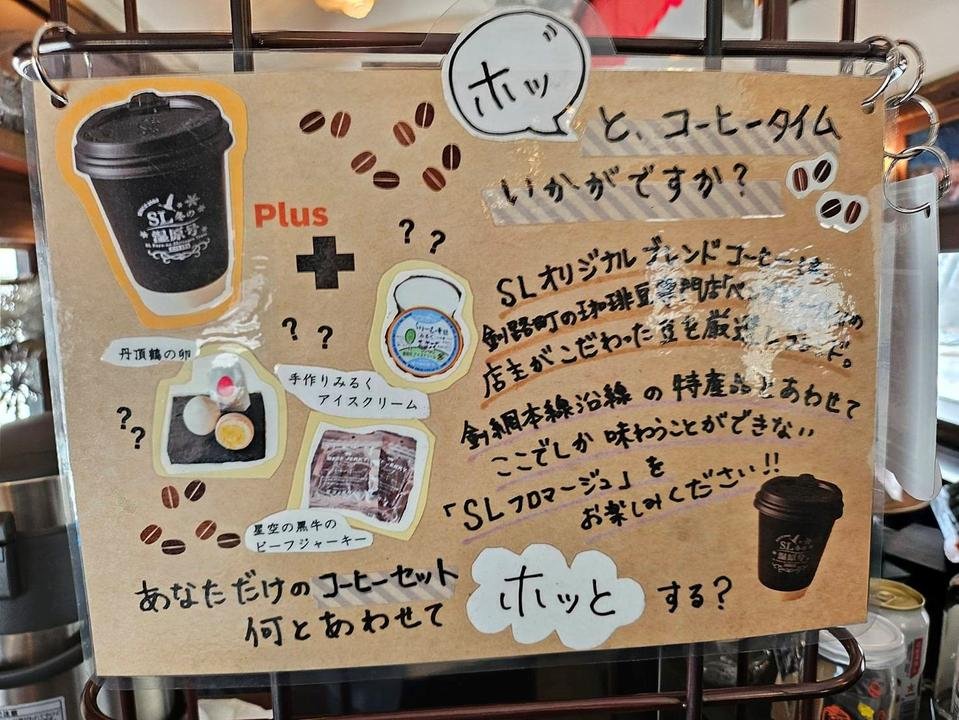 ホッ
と、コーヒータイム
いかがですか?
SL冬の
湿原号
Plus
??
SLオリジナルブレンドコーヒーは
釧路町の珈琲豆専門店
店主がこだわった豆を厳選
釧網本線沿線の特産品とあわせて
ここでしか味わうことができない
「SLフロマージュ」を
お楽しみください!!
??
丹頂鶴の卵
手作りみるく
アイスクリーム
??
BEEF JERKY
星空の黒牛の
ビーフジャーキー
SL冬の
湿原号
あなただけのコーヒーセット
何とあわせて
ホッと
する?